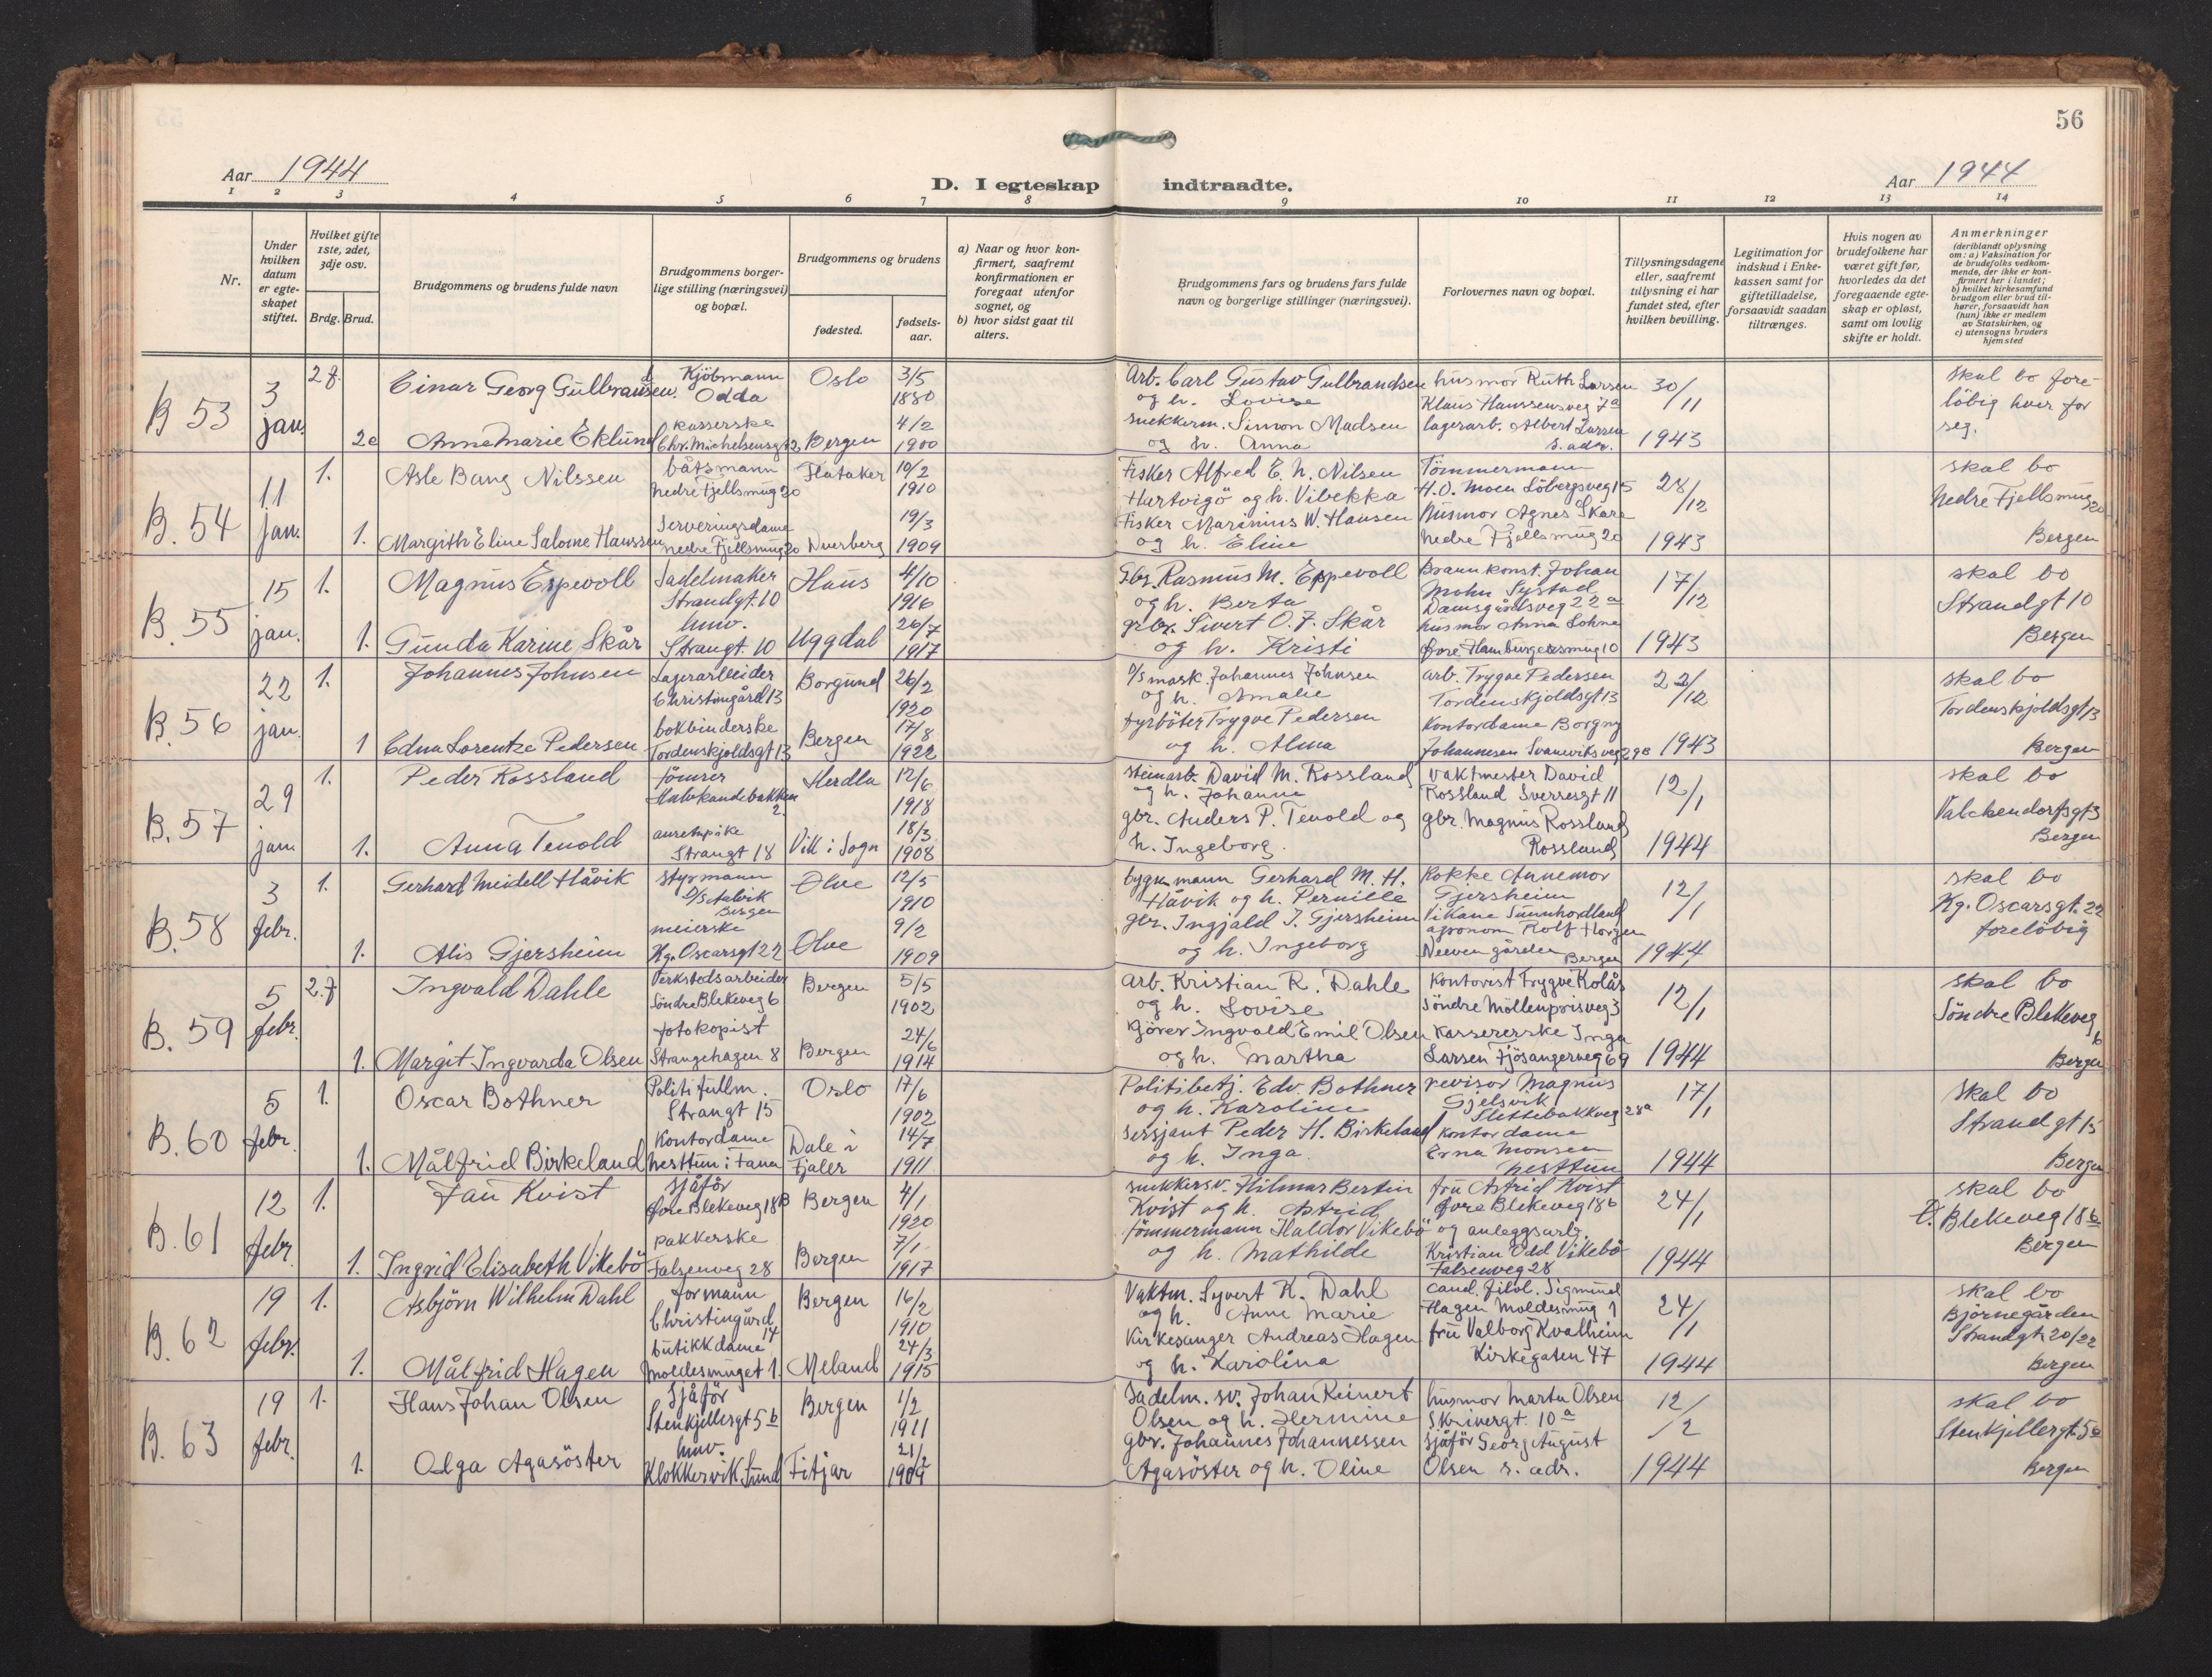 56
Aar 1944
D. I egteskap indtraadte.
Aar 1944
1 2 3 4 5 6 7 8 9 10 11 12 13 14
Nr.
Under hvilken datum er egte-skapet stiftet.
Hvilket gifte 1ste, 2det, 3dje osv.
Brdg. Brud.
Brudgommens og brudens fulde navn
Brudgommens borger-lige stilling (næringsvei) og bopæl.
Brudgommens og brudens
fødested.
fødsels-aar.
a) Naar og hvor kon-firmert, saafremt konfirmationen er foregaat utenfor sognet, og
b) hvor sidst gaat til alters.
Brudgommens fars og brudens fars fulde navn og borgerlige stillinger (næringsvei).
Forlovernes navn og bopæl.
Tillysningsdagene eller, saafremt tillysning ei har fundet sted, efter hvilken bevilling.
Legitimation for indskud i Enke-kassen samt for giftetilladelse, forsaavidt saadan tiltrænges.
Hvis nogen av brudefolkene har været gift før, hvorledes da det foregaaende egte-skap er opløst, samt om lovlig skifte er holdt.
Anmerkninger (deriblandt oplysning om: a) Vaksination for de brudefolks vedkom-mende, der ikke er kon-firmert her i landet; b) hvilket kirkesamfund brudgom eller brud til-hører, forsaavidt han (hun) ikke er medlem av Statskirken, og c) utensogns bruders hjemsted
B 53 3 jan. 2 f. Einar Georg Gulbrandsen. Kjöbmann Odda Oslo 3/5 1880
2e Anna Marie Eklund kasserske Chr. Michelsensgt 2 Bergen 4/2 1900
Arb. Carl Gustav Gulbrandsen og h. Lovise
snekkerm. Simon Madsen og h. Anna
husmor Ruth Larsen Klaus Hanssensveg 7a
lagerarb. Albert Larsen s. adr.
30/11 1943
skal bo fore-löbig hver for seg.
B. 54 11 jan. 1. Asle Bang Nilssen båtsmann Nedre Fjellsmug 20 Flataker 10/2 1910
1. Margith Eline Salome Hanssen Serveringsdame nedre Fjellsmug 20 Dverberg 19/3 1909
Fisker Alfred E. h. Nilsen Hartvigö og h. Vibekka
Fisker Marinius W. Hansen og h. Eline
Tömmermann H.O. Moen Löbergsveg 15
husmor Agnes Skare nedre Fjellsmug 20
28/12 1943
skal bo Nedre Fjellsmug 20 Bergen
B. 55 15 jan. 1. Magnus Espevoll Sadelmaker Strandgt. 10 Haus 4/10 1916
1. Gunda Karine Skår huv. Strangt. 10 Uggdal 26/7 1917
Gbr. Rasmus M. Eppevoll og h. Berta
grbr. Sivert O. F. Skår og h. Kristi
Brannkonst. Johan Mohn Systad Damsgårdsveg 22a
husmor Anna Lohne Övre Hamburgersmug 10
17/12 1943
skal bo Strandgt 10 Bergen
B. 56 22 jan. 1. Johannes Johnsen Lagerarbeider Christinegård 13 Borgund 26/2 1920
1 Edna Lorentze Pedersen bokbinderske Tordenskjoldsgt 13 Bergen 17/8 1922
D/S mask. Johannes Johnsen og h. Amalie
fyrböter Trygve Pedersen og h. Alma
arb. Trygve Pedersen Tordenskjoldsgt 13
Kontordame Borgny Johannesen Svaneviksveg 29B
22/12 1943
skal bo Tordenskjoldsgt 13 Bergen
B. 57 29 jan 1. Peder Rossland tömrer Halvkandebakken 2. Herdla 12/6 1918
1. Anna Tenold Strangt 18 Vik i Sogn 18/3 1908
steinarb. David M. Rossland og h. Johanne
gbr. Anders P. Tenold og h. Ingeborg.
Vaktmester David Rossland Sverresgt 11
gbr. Magnus Rossland Rossland
12/1 1944
skal bo Valckendorfsgt 3 Bergen
B. 58 3 febr. 1. Gerhard Meidell Håvik styrmann D/S Aalvik Bergen Ölve 12/5 1910
1. Alis Gjersheim meierske Kg. Oscarsgt 22 Ölve 9/2 1909
bygn.mann Gerhard M. H. Håvik og h. Pernille
gbr. Ingjald I. Gjersheim og h. Ingeborg
Kokke Annemor Gjersheim Vikane Sunnhordland
agronom Rolf Horgen Neevengården Bergen
12/1 1944
skal bo Kg. Oscarsgt. 22 foreløbig
B. 59 5 febr. 2. f Ingvald Dahle Verkstedsarbeider Söndre Blekeveg 6 Bergen 5/5 1902
1. Margit Ingvarda Olsen fotokopist Strangehagen 8 Bergen 24/6 1914
Arb. Kristian R. Dahle og h. Lovise
Kjörer Ingvald Emil Olsen og h. Martha
Kontorist Trygve Kolås Söndre Möllenprisveg 3
Kassererske Inga Larsen Fjösangerveg 69
12/1 1944
skal bo Söndre Blekeveg 6 Bergen
B. 60 5 febr. 1. Oscar Bothner Politifullm. Strangt 15 Oslo 17/6 1902
1. Målfrid Birkeland Kontordame Nesttun i Fana Dale i Fjaler 14/7 1911
Politibetj. Edv. Bothner og h. Karoline
Sersjant Peder H. Birkeland og h. Inga.
revisor Magnus Gjelsvik Slettebakkveg 28a
Kontordame Erna Monsen Nesttun
17/1 1944
skal bo Strandgt 15 Bergen
B. 61 12 febr 1. Jan Kvist sjåför Övre Blekeveg 18B Bergen 4/1 1920
1. Ingrid Elisabeth Vikebö pakkerske Falsenveg 28 Bergen 7/1 1917
snekkersv. Hilmar Bertin Kvist og h. Astrid
tömmermann Haldor Vikebö og h. Mathilde
fru Astrid Kvist Övre Blekeveg 18b
og anleggsarb. Kristian Odd Vikebö Falsenveg 28
24/1 1944
skal bo Ö. Blekeveg 18b Bergen
B. 62 19 febr. 1. Asbjörn Wilhelm Dahl formann Christinegård 14 Bergen 16/2 1910
1. Målfrid Hagen butikkdame Moldesmuget 1. Meland 24/3 1915
Vaktm. Syvert K. Dahl og h. Anne Marie
Kirkesanger Andreas Hagen og h. Karolina
cand. filol. Sigmund Hagen Moldesmug 1
fru Valborg Kvalheim Kirkegaten 47
24/1 1944
skal bo Björnegården Strandgt. 20/22 Bergen
B. 63 19 febr. 1. Hans Johan Olsen Sjåför Stenkjellergt 5b Bergen 1/2 1911
1. Olga Agasöster huv. Klokkervik, Sund Fitjar 21/2 1909
Sadelm. sv. Johan Reinert Olsen og h. Hermine
gbr. Johannes Johannessen Agasöster og h. Oline
husmor Marta Olsen Skrivergt. 10a
sjåför Georg August Olsen s. adr.
12/2 1944
skal bo Stenkjellergt. 5a Bergen